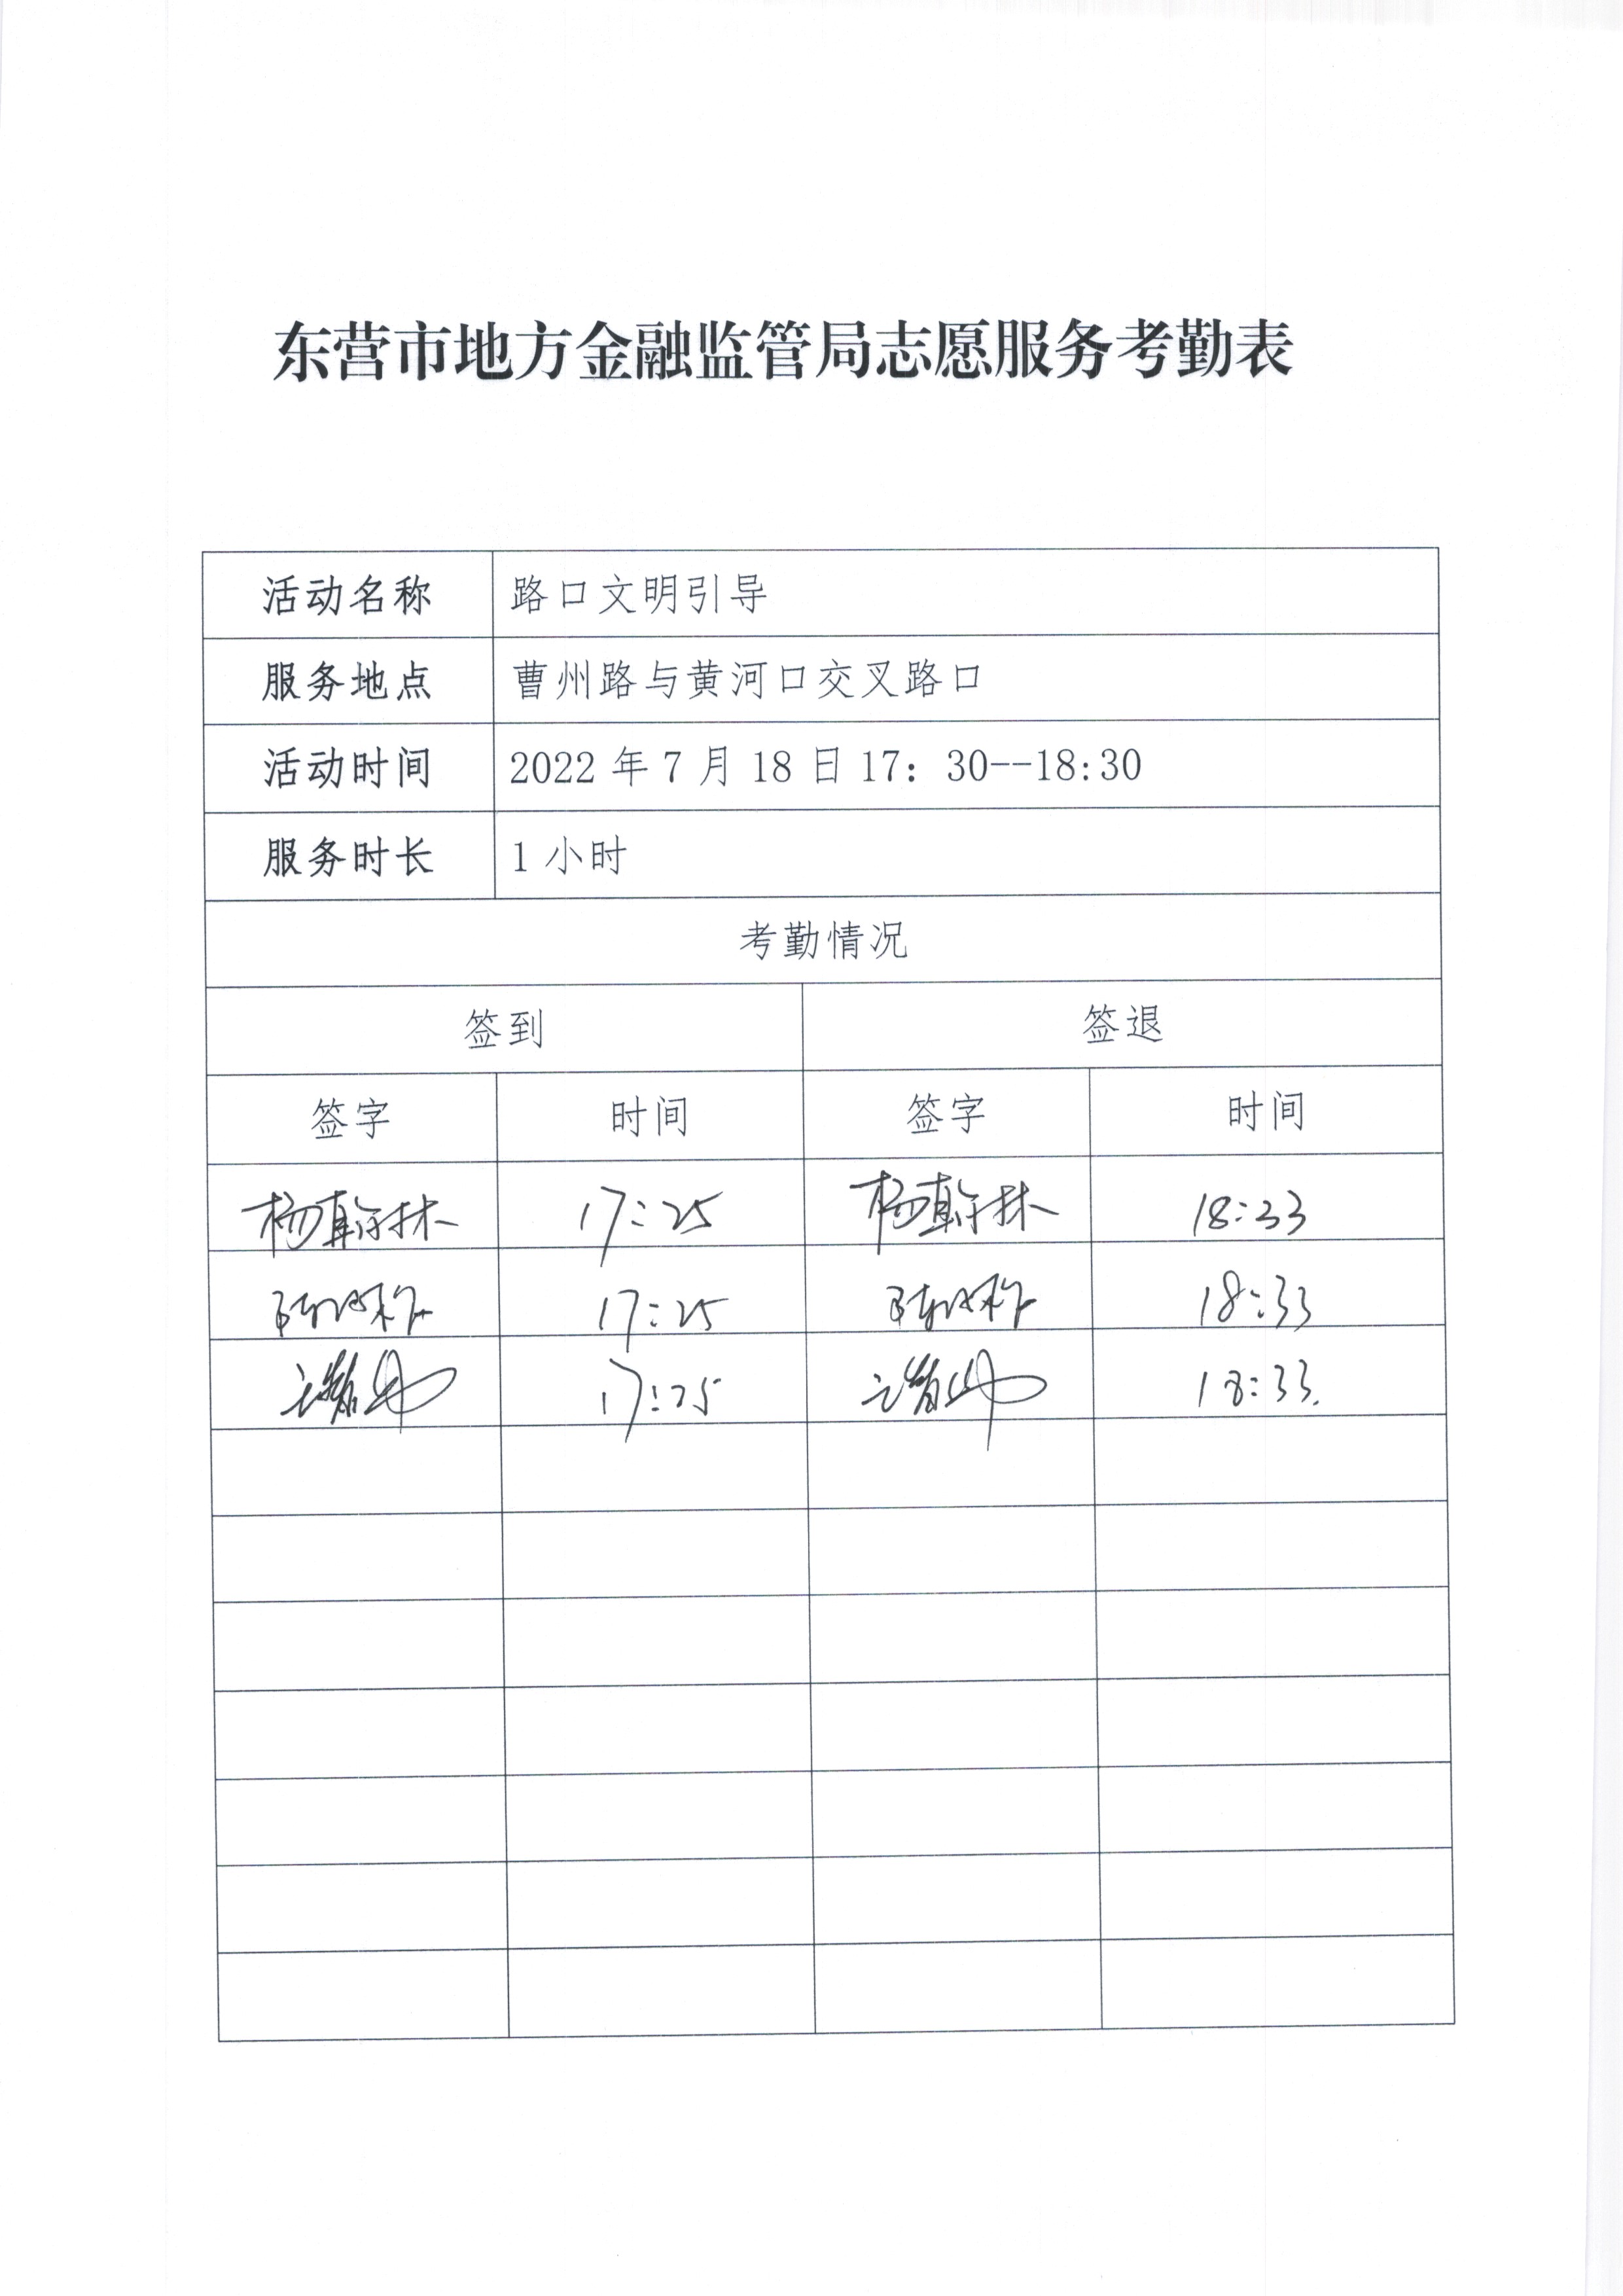 东营市地方金融监管局志愿服务考勤表
活动名称 路口文明引导
服务地点 曹州路与黄河口交叉路口
活动时间 2022年7月18日17：30--18:30
服务时长 1小时
考勤情况
签到 签退
签字 时间 签字 时间
杨翰林 17:25 杨翰林 18:33
17:25 18:33
17:25 18:33.